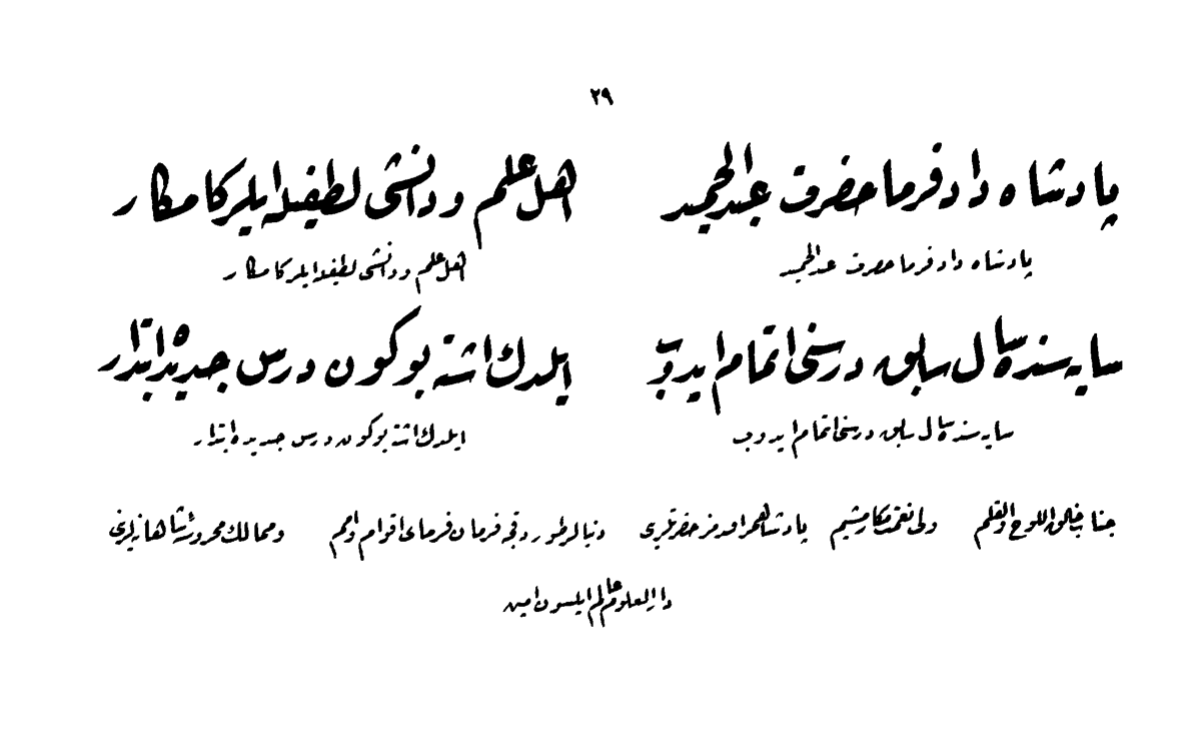 ٢٩
پادشاه داد فرما حضرت عبدالحمید اهل علم و دانشی لطفیله ایلر کامکار
پادشاه داد فرما حضرت عبدالحمید اهل علم و دانشی لطفیله ایلر کامکار
سایه سنده سال سابق درسنی اتمام ایدوب ایلدك اشته بوكون درس جدیده ابتدار
سایه سنده سال سابق درسنی اتمام ایدوب ایلدك اشته بوكون درس جدیده ابتدار
جناب خالق اللوح والقلم ولی نعمت پادشاهمز افندمز حضرتلرینی دنیالر طوردقجه فرمان فرمای اقوام و امم وممالك محروسۀ شاهانه لرینی
دار العلوم عالم ایلسون امین